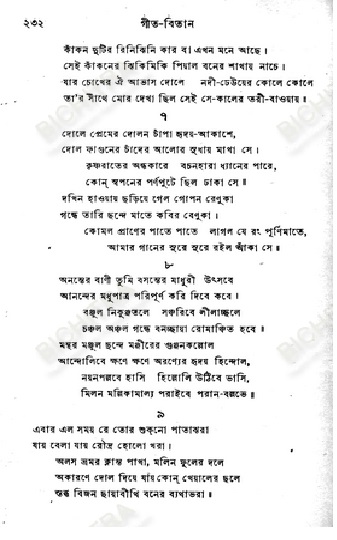 ২৩২ গীত-বিতান
কাঁকন দুটির রিনিঝিনি কার বা এখন মনে আছে।
সেই কাঁকনের ঝিকিমিকি পিয়াল বনের শাখায় নাচে।
যার চোখের ঐ আভাস দোলে নদী-ঢেউয়ের কোলে কোলে
তা'র সাথে মোর দেখা ছিল সেই সে-কালের তরী-বাওয়ায়॥
৭
দোলে প্রেমের দোলন চাঁপা হৃদয়-আকাশে,
দোল ফাগুনের চাঁদের আলোর সুধায় মাখা সে।
কৃষ্ণরাতের অন্ধকারে বচনহারা ধ্যানের পারে,
কোন্ স্বপনের পর্ণপুটে ছিল ঢাকা সে॥
দখিন হাওয়ায় ছড়িয়ে গেল গোপন রেণুকা
গন্ধে তারি ছন্দে মাতে কবির বেণুকা।
কোমল প্রাণের পাতে পাতে লাগল যে রং পূর্ণিমাতে,
আমার গানের সুরে সুরে রইল আঁকা সে॥
৮
অনন্তের বাণী তুমি বসন্তের মাধুরী উৎসবে
আনন্দের মধুপাত্র পরিপূর্ণ করি দিবে কবে।
বঞ্জুল নিকুঞ্জতলে সঞ্চরিবে লীলাচ্ছলে
চঞ্চল অঞ্চল গন্ধে বনচ্ছায়া রোমাঞ্চিত হবে॥
মন্থর মঞ্জুল ছন্দে মঞ্জীরের গুঞ্জনকল্লোল
আন্দোলিবে ক্ষণে ক্ষণে অরণ্যের হৃদয় হিন্দোল,
নয়নপল্লবে হাসি হিল্লোলি উঠিবে ভাসি,
মিলন মল্লিকামাল্য পরাইবে পরান-বল্লভে॥
৯
এবার এল সময় রে তোর শুক্‌নো পাতাঝরা
যায় বেলা যায় রৌদ্র হোলো খরা।
অলস ভ্রমর ক্লান্ত পাখা, মলিন ফুলের দলে
অকারণে দোল দিয়ে যায় কোন্ খেয়ালের ছলে
স্তব্ধ বিজন ছায়াবীথি বনের ব্যথাভরা॥